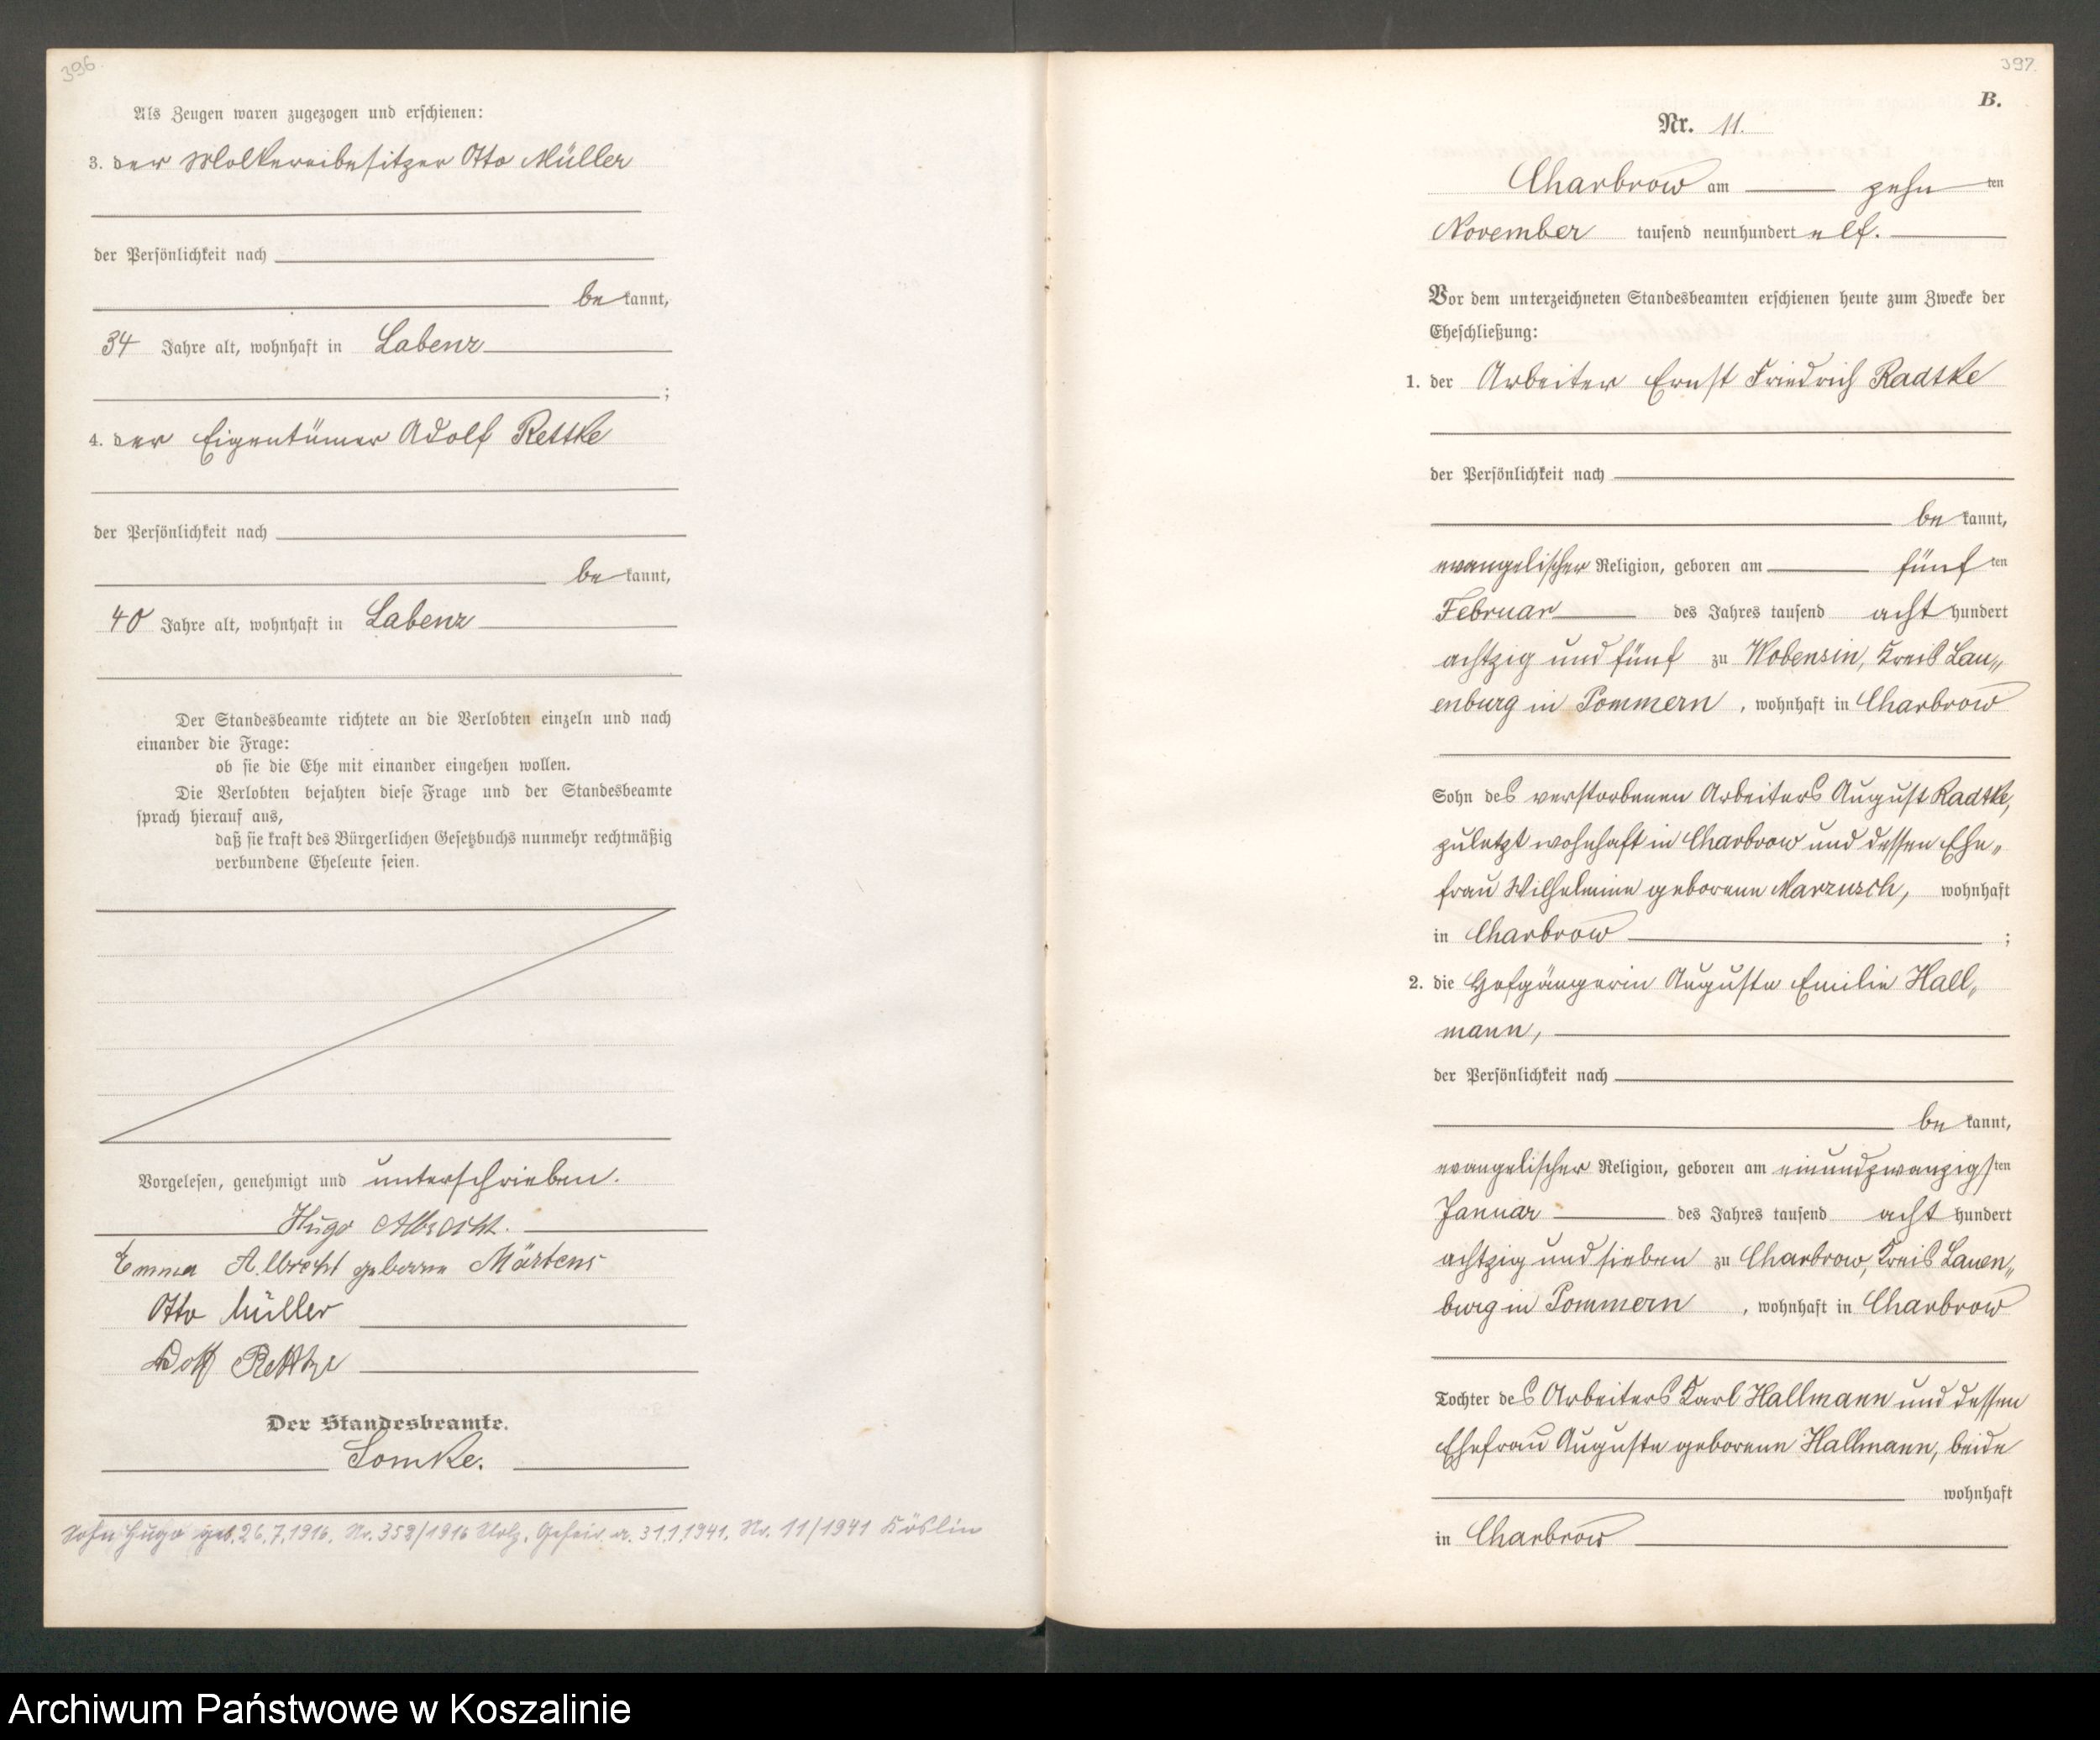 396.
Als Zeugen waren zugezogen und erschienen:
3. der Molkereibesitzer Otto Müller
der Persönlichkeit nach
be kannt,
34 Jahre alt, wohnhaft in Labenz
;
4. der Eigentümer Adolf Rettke
der Persönlichkeit nach
be kannt,
40 Jahre alt, wohnhaft in Labenz
Der Standesbeamte richtete an die Verlobten einzeln und nach
einander die Frage:
ob sie die Ehe mit einander eingehen wollen.
Die Verlobten bejahten diese Frage und der Standesbeamte
sprach hierauf aus,
daß sie kraft des Bürgerlichen Gesetzbuchs nunmehr rechtmäßig
verbundene Eheleute seien.
Vorgelesen, genehmigt und unterschrieben.
Hugo Albrecht.
Emma Albrecht geborene Märtens
Otto Müller
Adolf Rettke
Der Standesbeamte.
Lomke.
Sohn Hugo geb. 26.7.1916. Nr. 352/1916 Stolp. Geheir. a. 31.1.1941. Nr. 11/1941 Köslin
397.
B.
Nr. 11.
Charbrow am zehn ten
November tausend neunhundert elf.
Vor dem unterzeichneten Standesbeamten erschienen heute zum Zwecke der
Eheschließung:
1. der Arbeiter Ernst Friedrich Radtke
der Persönlichkeit nach
be kannt,
evangelischer Religion, geboren am fünf ten
Februar des Jahres tausend acht hundert
achtzig und fünf zu Wobensin, Kreis Lau„
enburg in Pommern, wohnhaft in Charbrow
Sohn des verstorbenen Arbeiters August Radtke,
zuletzt wohnhaft in Charbrow und dessen Ehe„
frau Wilhelmine geborene Marzusch, wohnhaft
in Charbrow ;
2. die Hofgängerin Auguste Emilie Hall„
mann,
der Persönlichkeit nach
be kannt,
evangelischer Religion, geboren am einundzwanzigsten
Januar des Jahres tausend acht hundert
achtzig und sieben zu Charbrow, Kreis Lauen„
burg in Pommern, wohnhaft in Charbrow
Tochter des Arbeiters Karl Hallmann und dessen
Ehefrau Auguste geborene Hallmann, beide
wohnhaft
in Charbrow
Archiwum Państwowe w Koszalinie